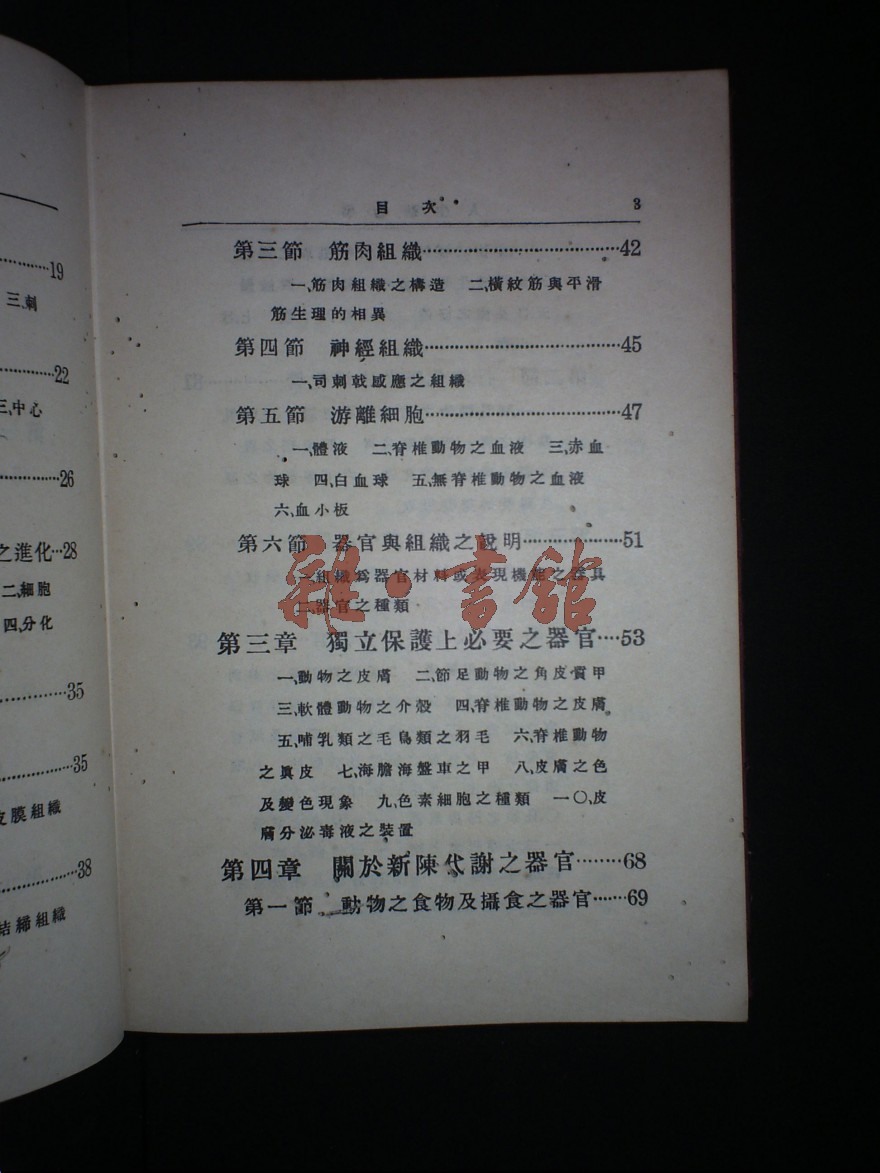 19
三、刺
22
三、中心
26
之進化…28
二、細胞
四、分化
35
35
皮膜組織
38
結締組織
目次 3
第三節 筋肉組織……42
一、筋肉組織之構造 二、橫紋筋與平滑
筋生理的相異
第四節 神經組織……45
一、司刺戟感應之組織
第五節 游離細胞……47
一、體液 二、脊椎動物之血液 三、赤血
球 四、白血球 五、無脊椎動物之血液
六、血小板
第六節 器官與組織之說明……51
一、組織爲器官材料或表現機能之器具
二、器官之種類
雜·書館
第三章 獨立保護上必要之器官…53
一、動物之皮膚 二、節足動物之角皮質甲
三、軟體動物之介殼 四、脊椎動物之皮膚
五、哺乳類之毛鳥類之羽毛 六、脊椎動物
之眞皮 七、海膽海盤車之甲 八、皮膚之色
及變色現象 九、色素細胞之種類 一〇、皮
膚分泌毒液之裝置
第四章 關於新陳代謝之器官……68
第一節 動物之食物及攝食之器官……69